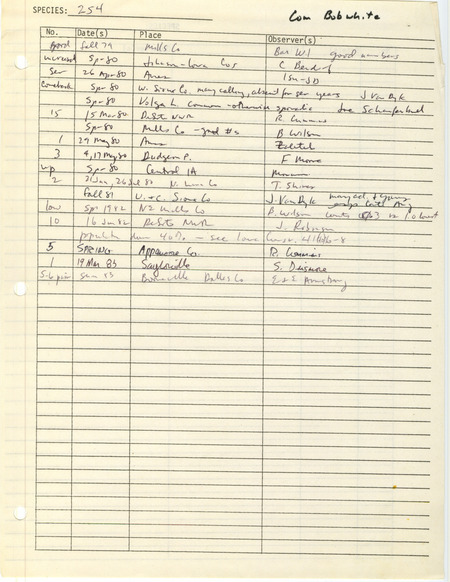 SPECIES: 254 Com Bobwhite
No. Date(s) Place Observer(s)
Good fall 79 Mills Co good numbers
increased Spr 80 C Bendorf
26 Apr 80 Ames ISU-JD
Comeback Spr 80 W. Sioux Co many calling, absent for sev years J Van Dyk
Spr 80 Volga L common - otherwise sporadic Joe Schaufenbuel
15 15 Mar 80 DeSt NWR R. Cummins
Spr 80 Mills Co - good #s B Wilson
1 29 May 80 Ames Zaletel
3 4, 17 May 80 Dudgeon P. F Moore
up Spr 80 Central IA
2 26 Jul 80 T. Shires
Fall 81 Sioux Co J. Van Dyk
low Spr 1982 NE Mills Co B. Wilson
10 16 Jan 82 DeSoto NWR J. Robinson
down 40% - see Iowa
5 SPRING Appanoose Co. R. Cummins
1 19 Mar 83 Saylorville S. Dinsmore
5-6 pair Sum 83 Dallas Co E & E Armstrong